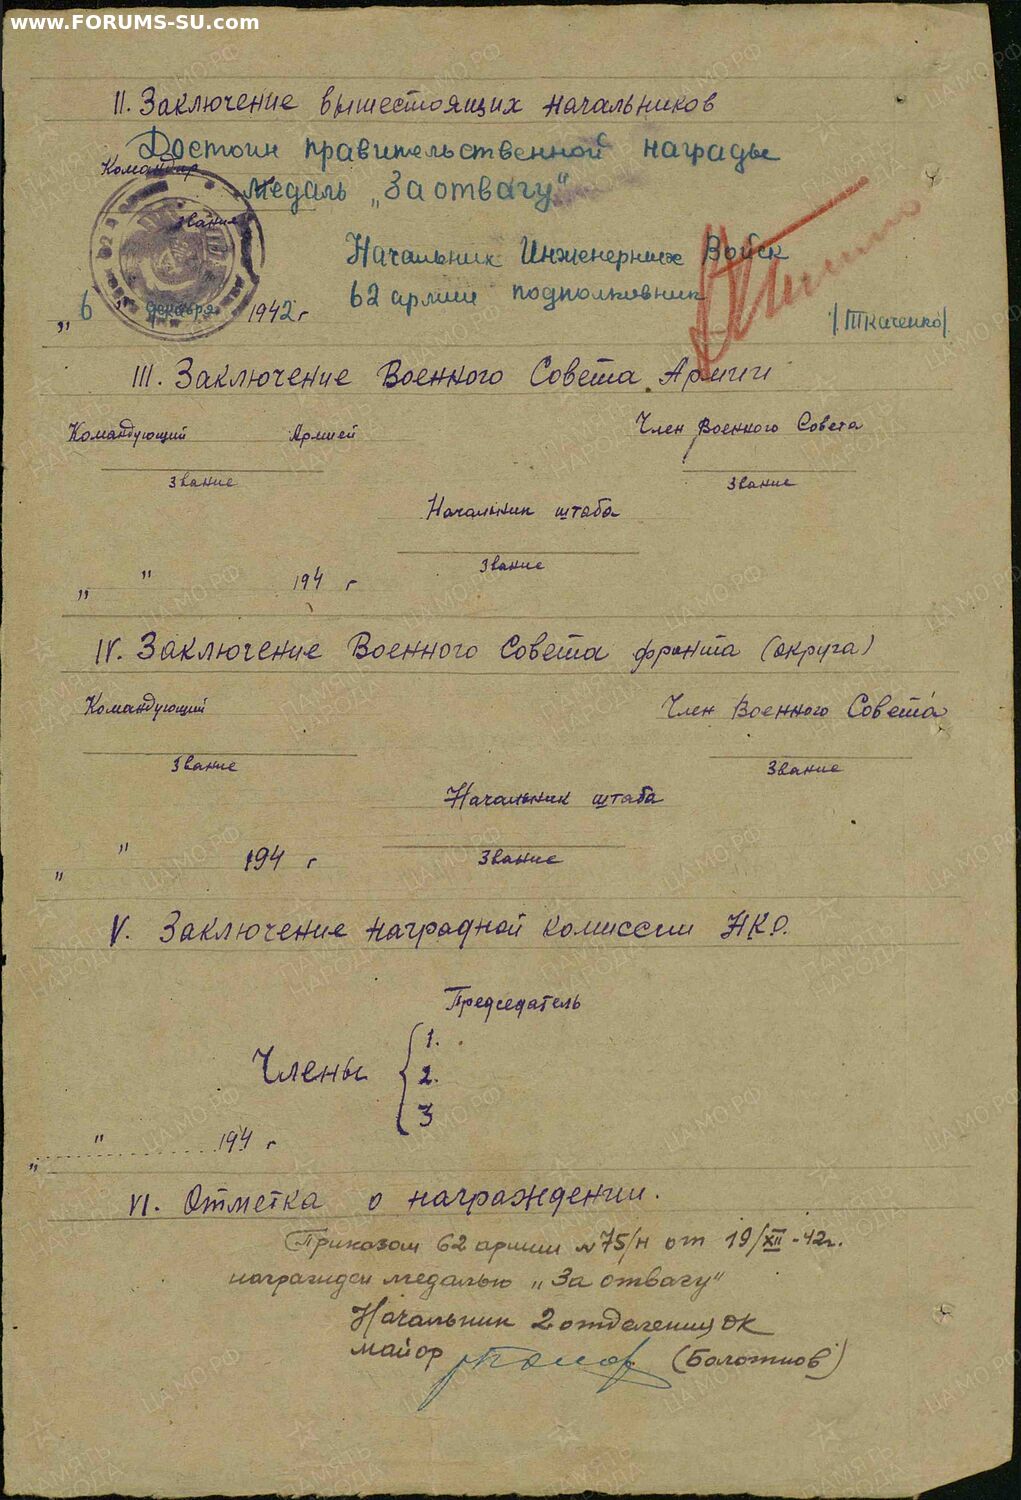 www.FORUMS-SU.com
II. Заключение вышестоящих начальников
Достоин правительственной награды
Командир
медаль „За отвагу"
звание
Начальник Инженерных Войск
62 армии подполковник
„6" декабря 1942 г
/Ткаченко/
III. Заключение Военного Совета Армии
Командующий Армией
Член Военного Совета
Звание
Звание
Начальник штаба
Звание
„ " 194 г
IV. Заключение Военного Совета фронта (округа)
Командующий
Член Военного Совета
Звание
Звание
Начальник штаба
Звание
„ " 194 г
V. Заключение наградной комиссии НКО.
Председатель
Члены
1.
2.
3
„ " 194 г
VI. Отметка о награждении.
Приказом 62 армии №75/н от 19/XII-42г.
награжден медалью „За отвагу"
Начальник 2 отделения ОК
майор (Болотнов)
ПАМЯТЬ НАРОДА
ЦА МО РФ